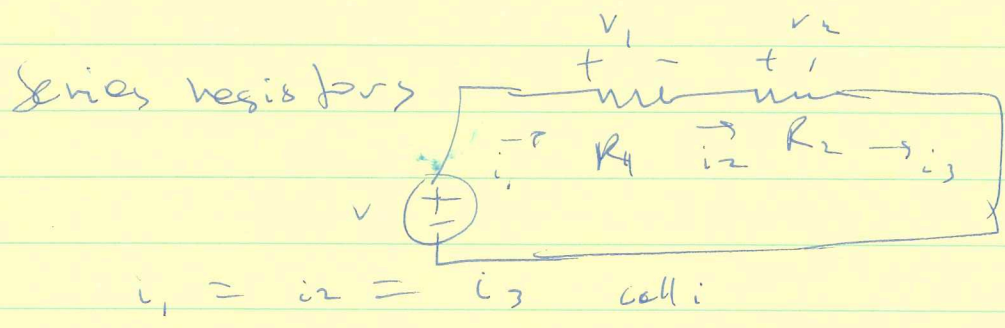 V1 V2
Series resistors + - + -
i1 → R1 i2 → R2 → i3
V + -
i1 = i2 = i3 call i